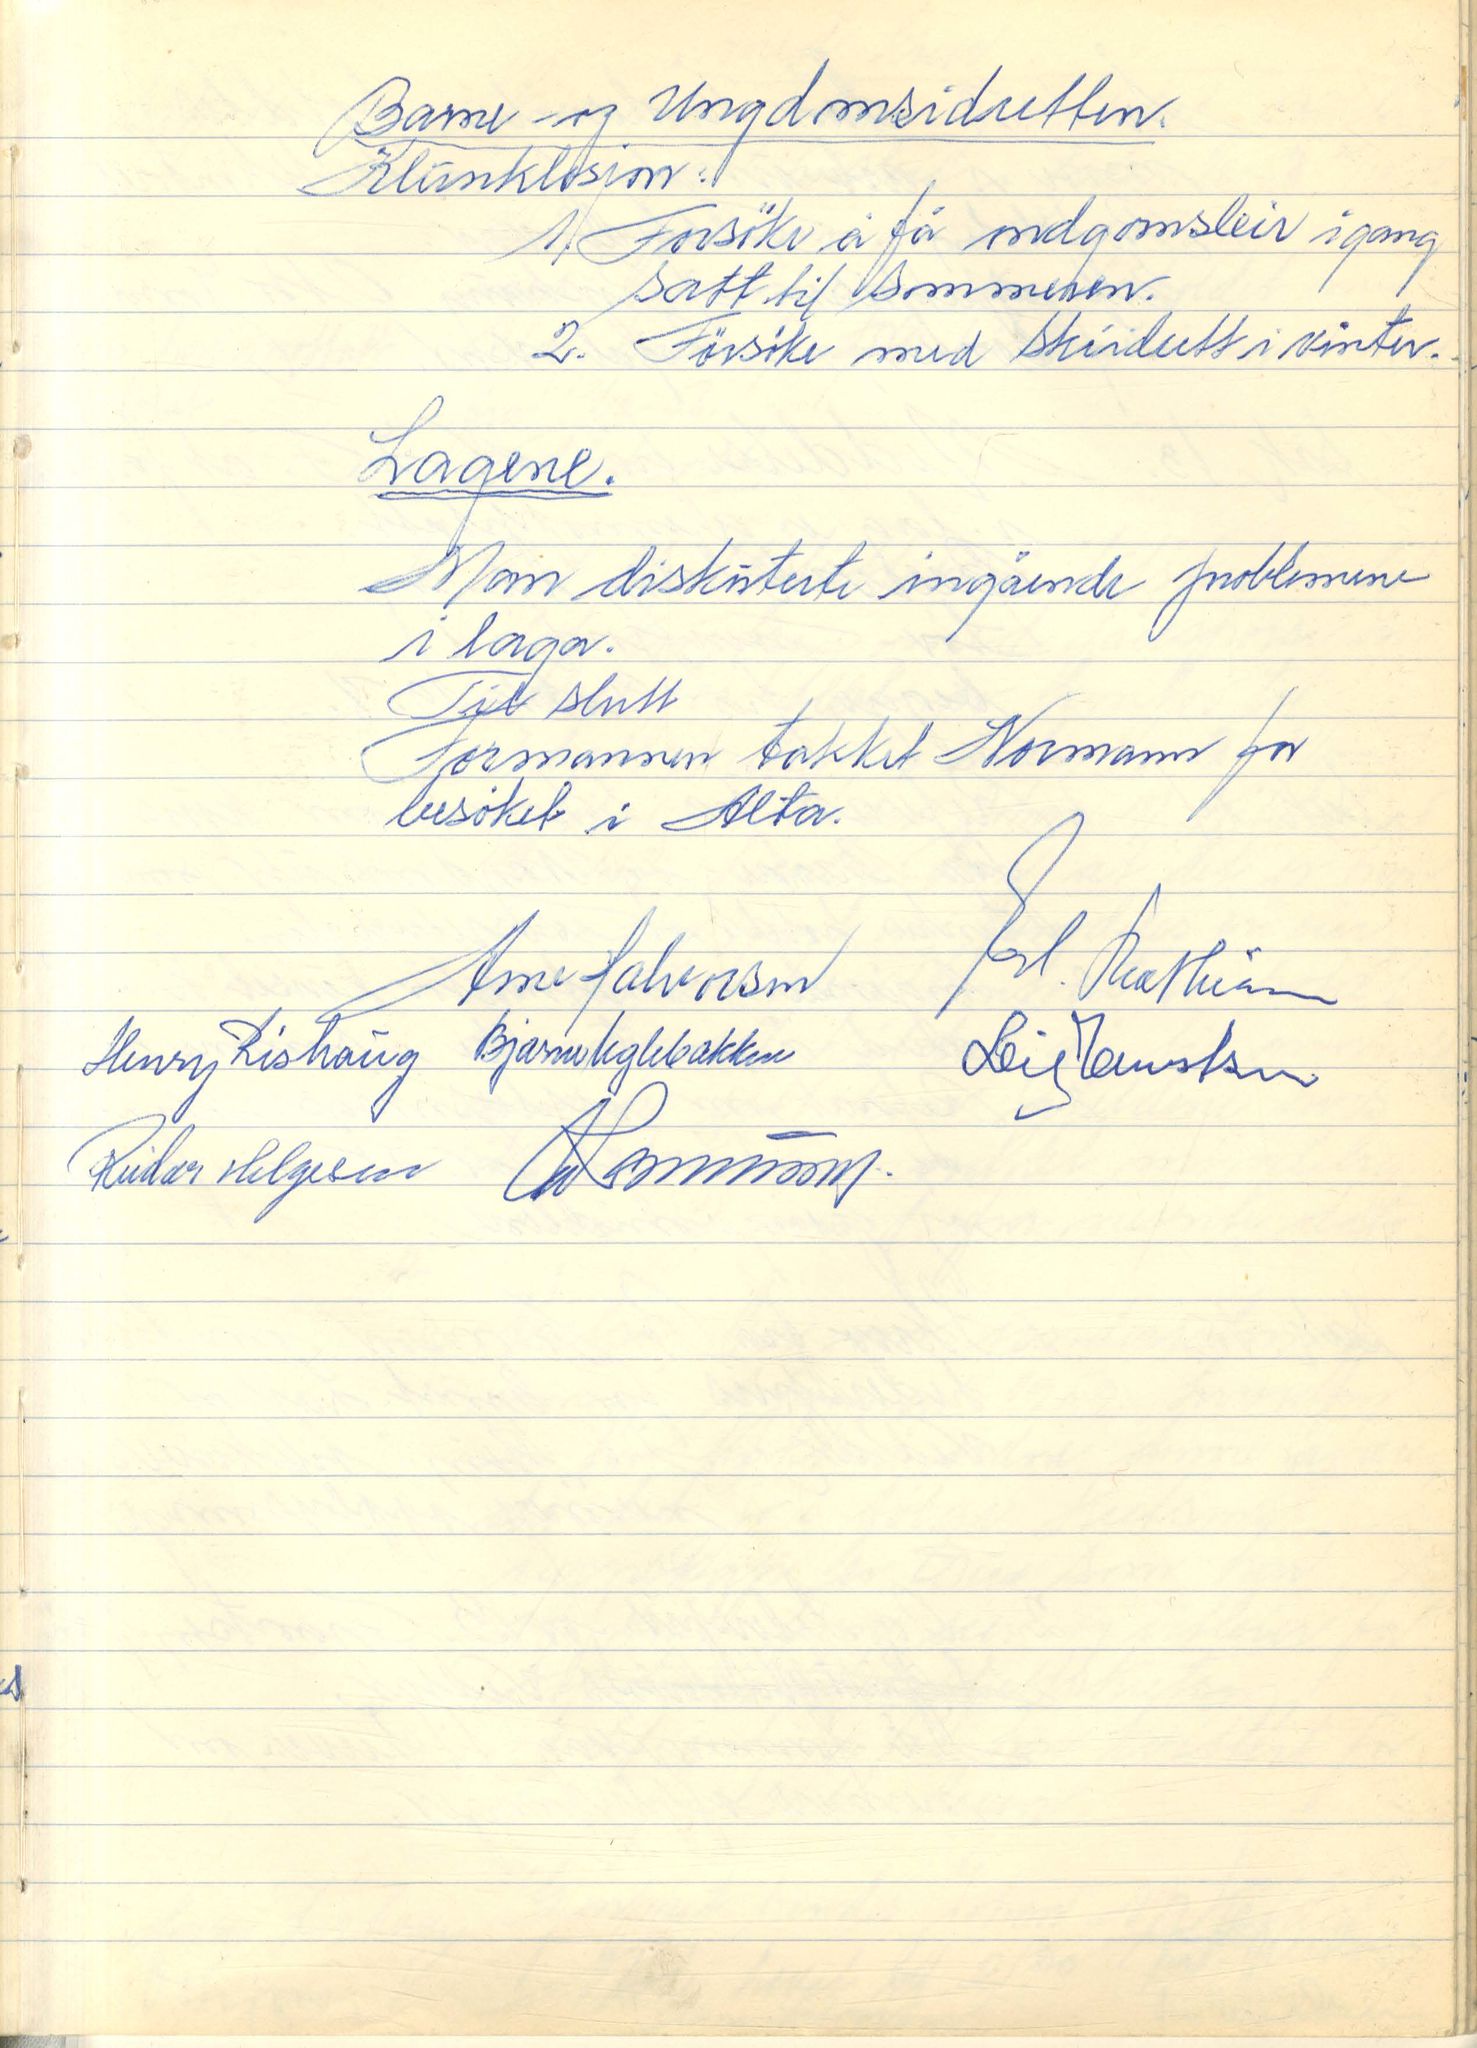 Barne- og Ungdomsidretten.
Klunklosjon:
1. Forsöke å få ondgomsleir igang
satt til sommeren.
2. Försöke med skiidrett i vinter.
Lagene.
Man diskuterte ingående problemene
i laga.
Til slutt
Formannen takket Normann for
besöket i Alta.
Arne Halvorsen
Henry Rishaug Bjarne Uglebakken
Reidar Helgesen